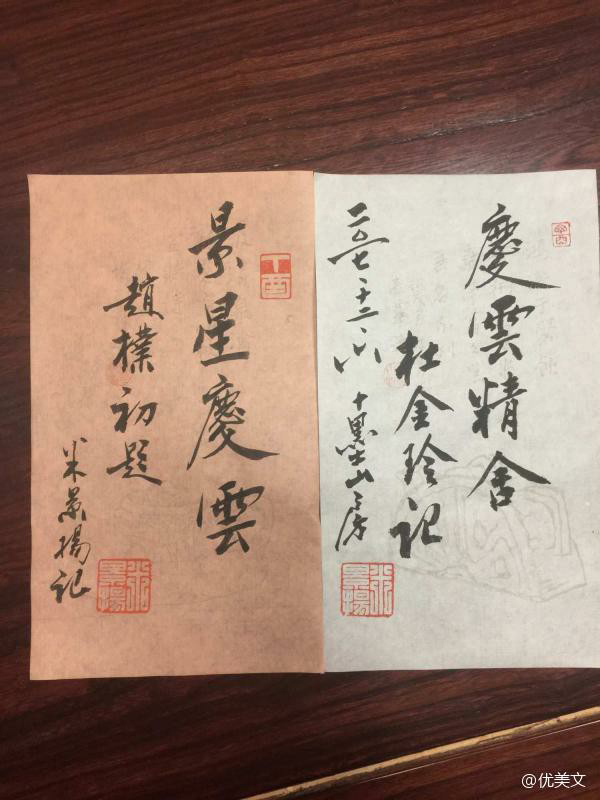 慶雲精舍
杜金玲記
二〇一七、十二、八 十墨山房
米景揚
丁酉
景星慶雲
趙樸初題
米景揚記
米景揚
@优美文